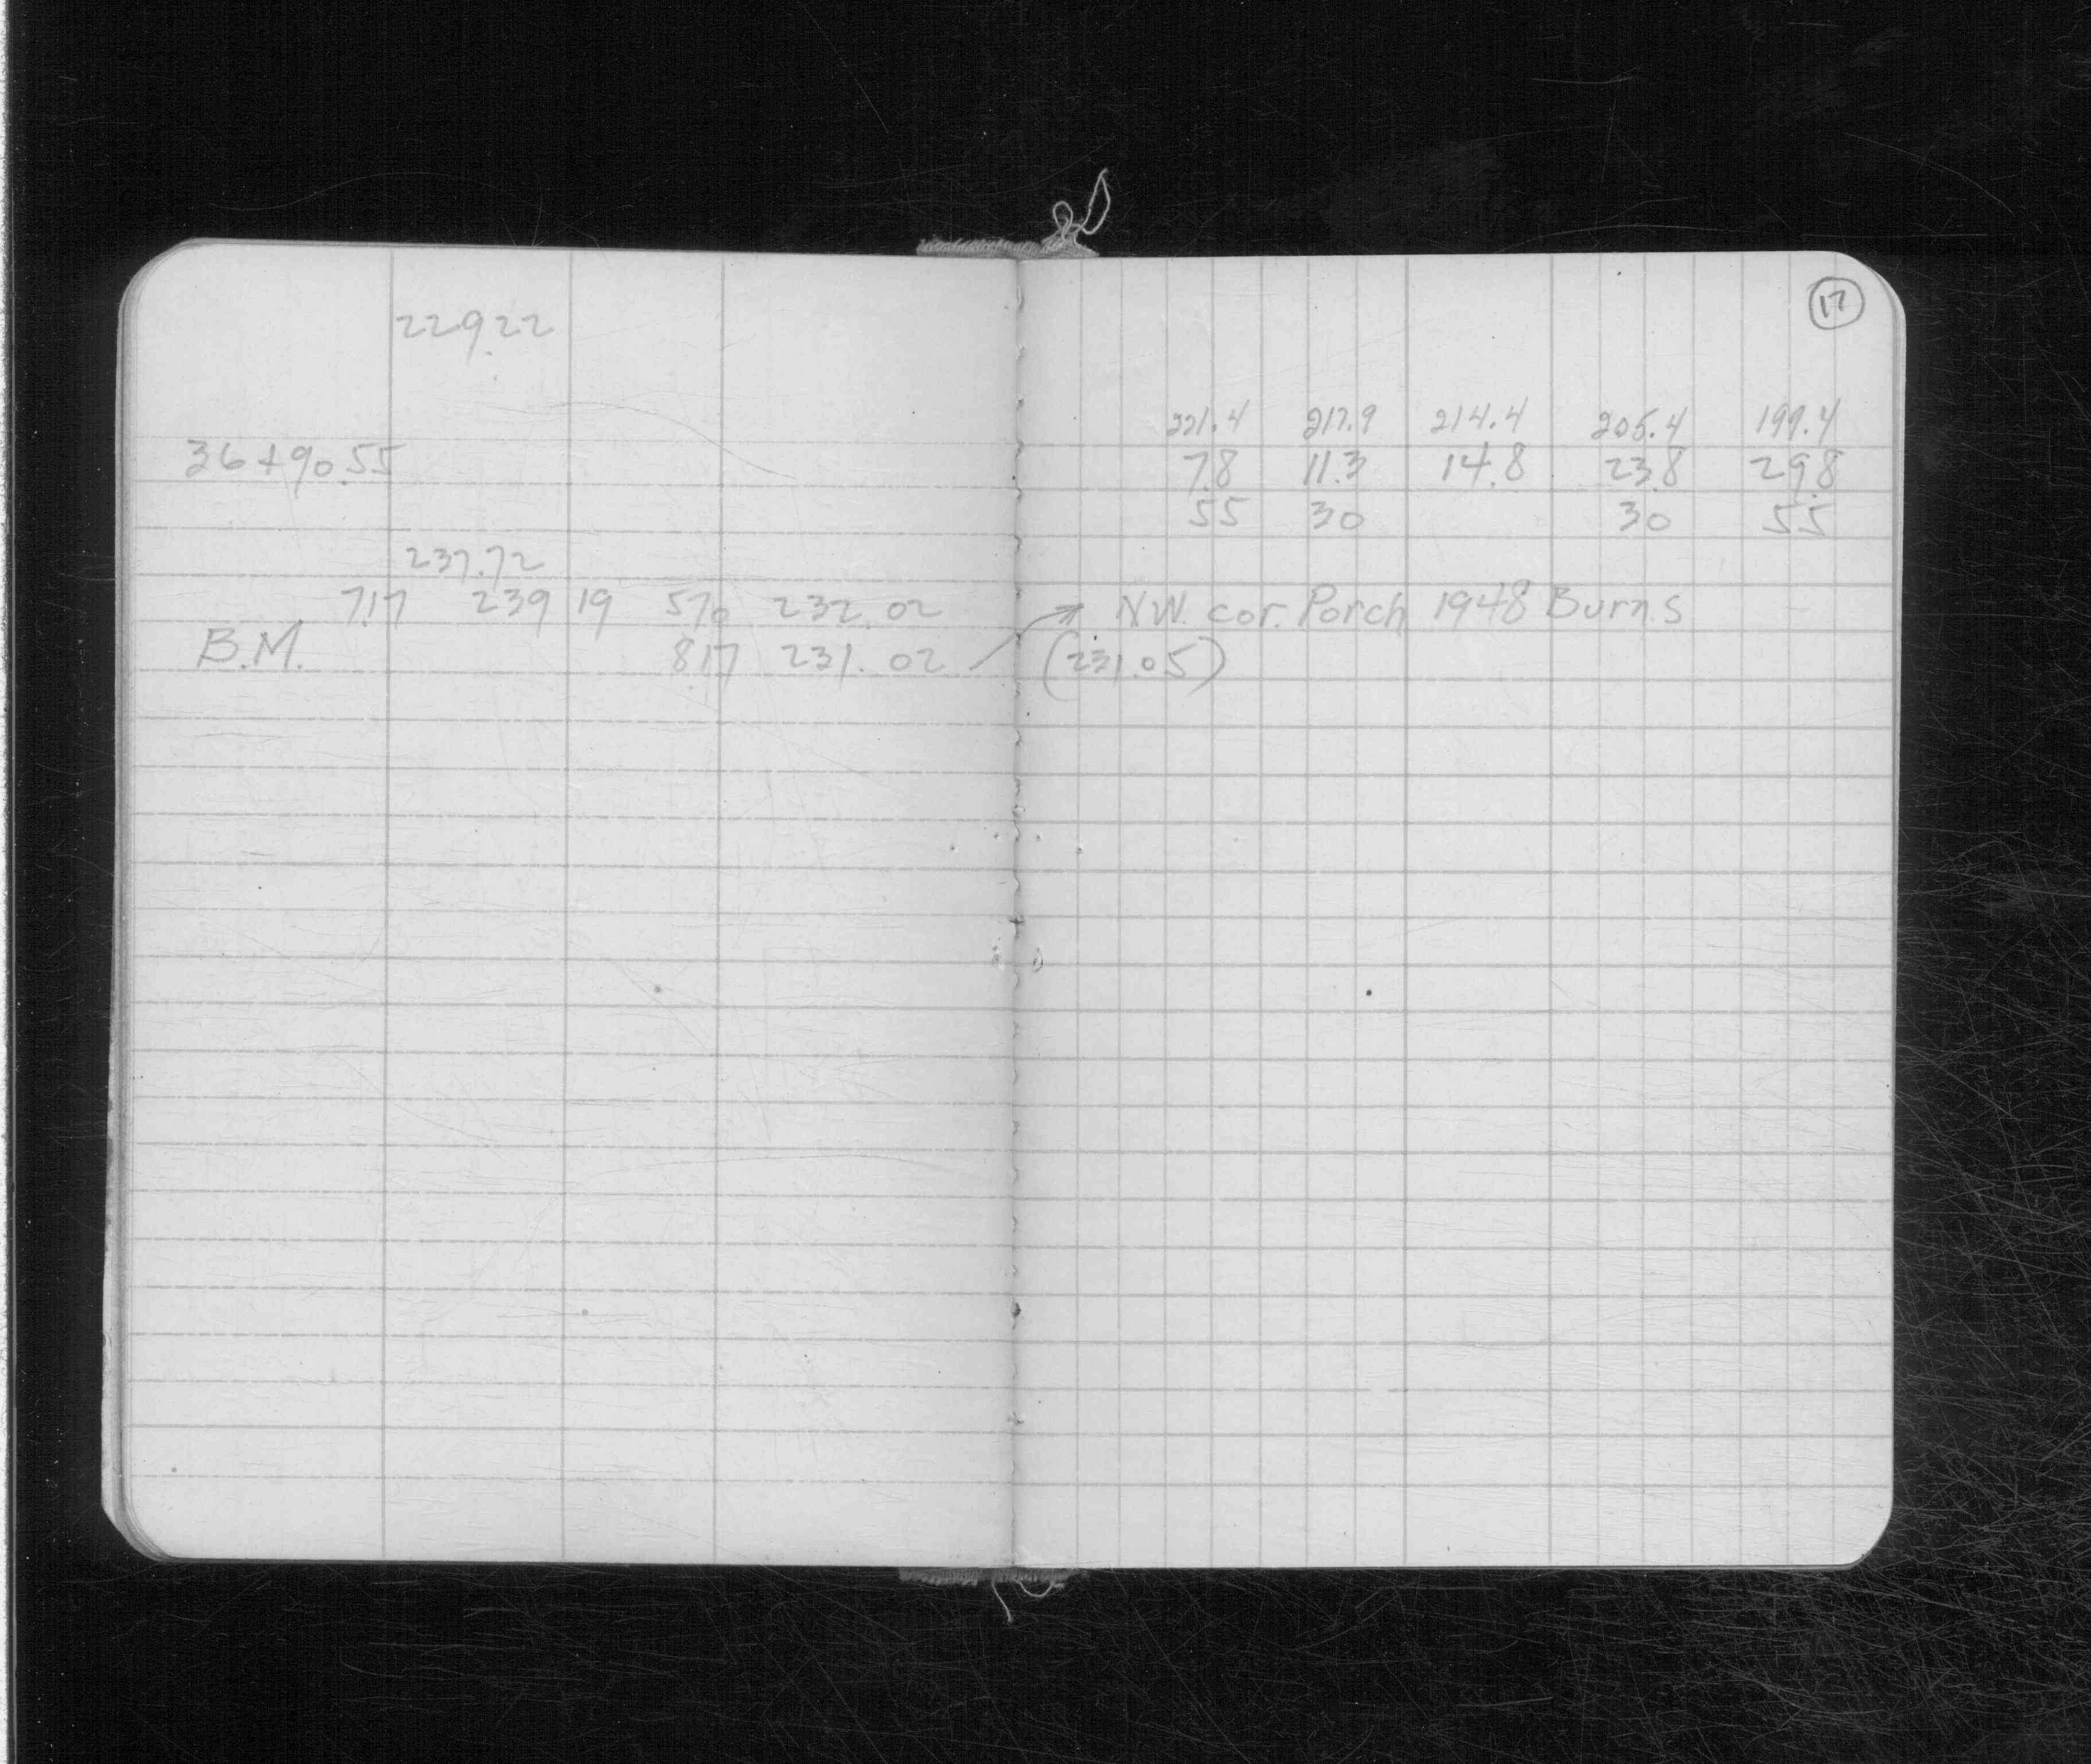 229.22
36+90.55
237.72
7.17 239 19 5 70 232.02
B.M. 8 17 231.02
17
221.4 217.9 214.4 205.4 199.4
7.8 11.3 14.8 23.8 29.8
55 30 30 55
NW. cor. Porch 1948 Burns
(231.05)